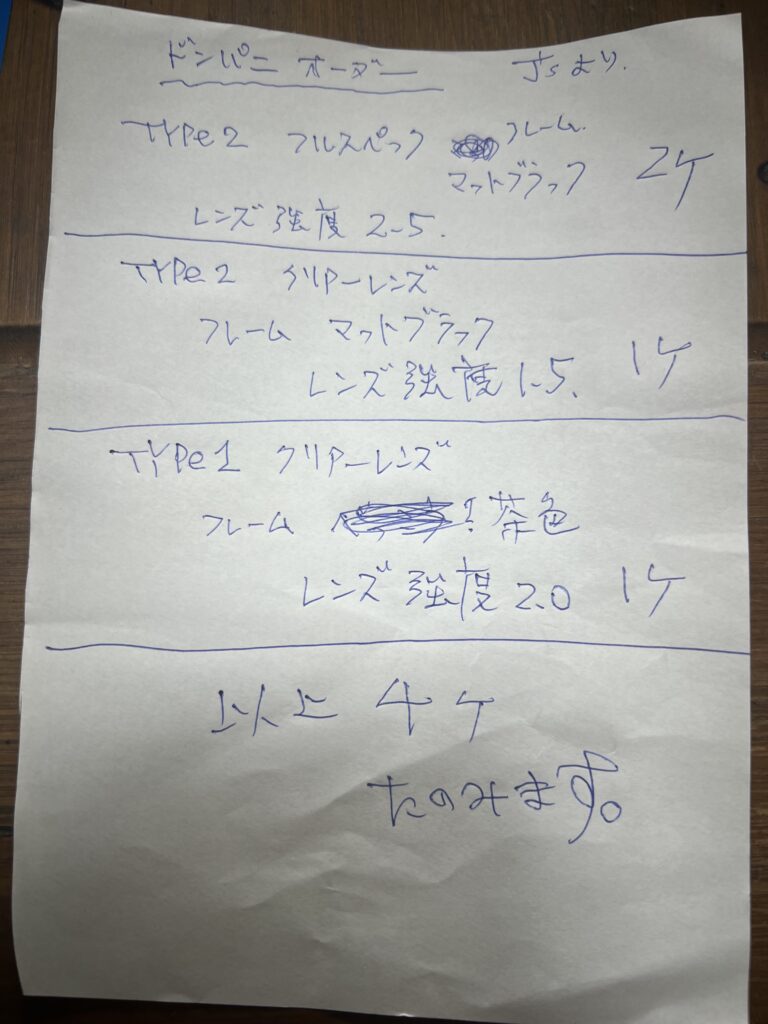 ドンパニ オーダー J'sより.
TYPe2 フルスペック フレーム.
マットブラック 2ケ
レンズ強度 2.5.
TYPe2 クリアーレンズ
フレーム マットブラック
レンズ強度 1.5. 1ケ
TYPe1 クリアーレンズ
フレーム 茶色
レンズ強度 2.0 1ケ
以上 4ケ
たのみます。